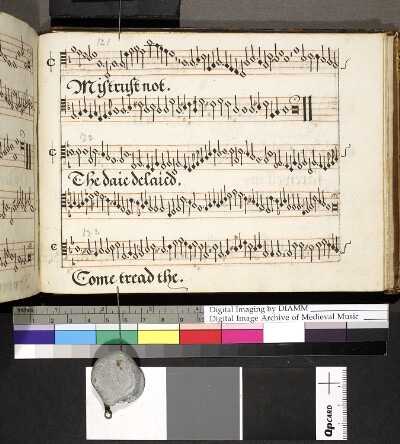 121
Mistrust not.
122
The daie delaied.
123
Come tread the.
inches 1 2 3 4
Digital Imaging by DIAMM
Digital Image Archive of Medieval Music
QPCARD